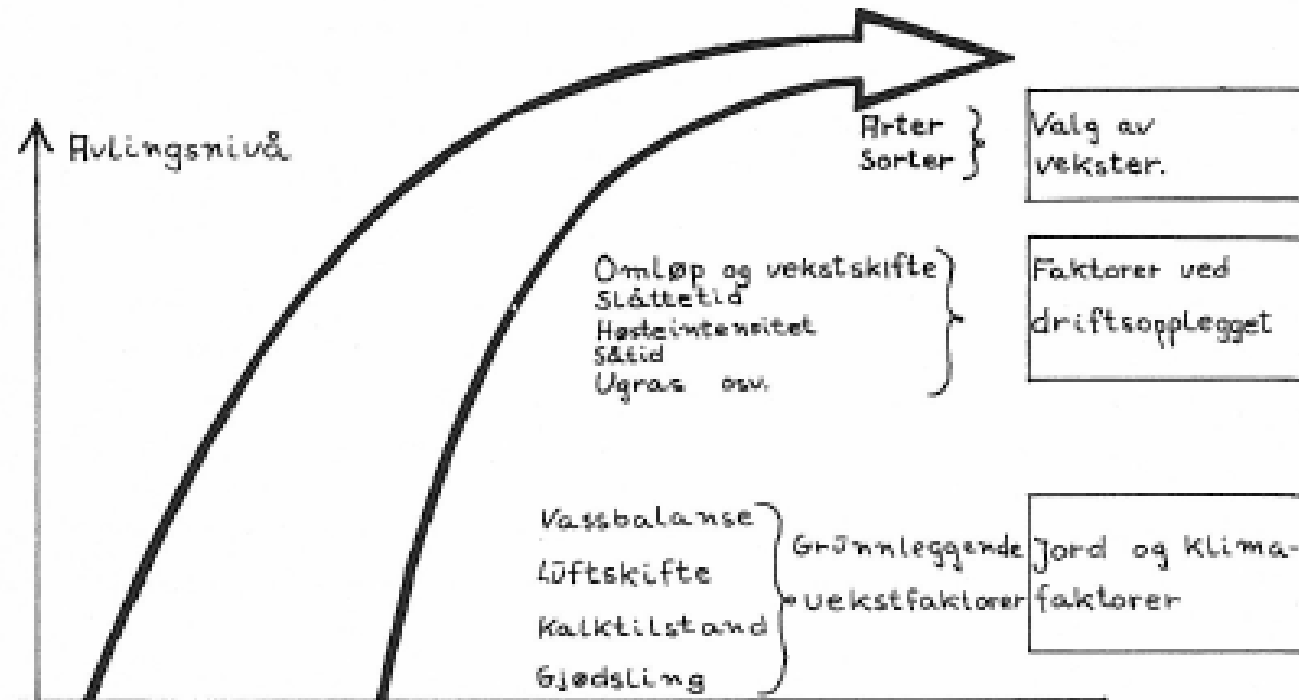 Avlingsnivå
Arter
Sorter
Valg av
vekster.
Omløp og vekstskifte
Slåttetid
Høsteintensitet
Såtid
Ugras osv.
Faktorer ved
driftsopplegget
Vassbalanse
Luftskifte
Kalktilstand
Gjødsling
Grunnleggende
vekstfaktorer
Jord og klima-
faktorer